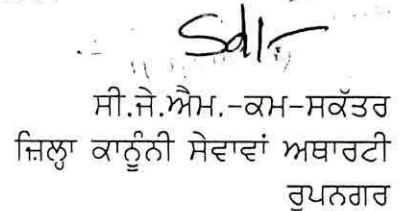 Sd/-
ਸੀ.ਜੇ.ਐਮ.-ਕਮ-ਸਕੱਤਰ
ਜ਼ਿਲ੍ਹਾ ਕਾਨੂੰਨੀ ਸੇਵਾਵਾਂ ਅਥਾਰਟੀ
ਰੂਪਨਗਰ